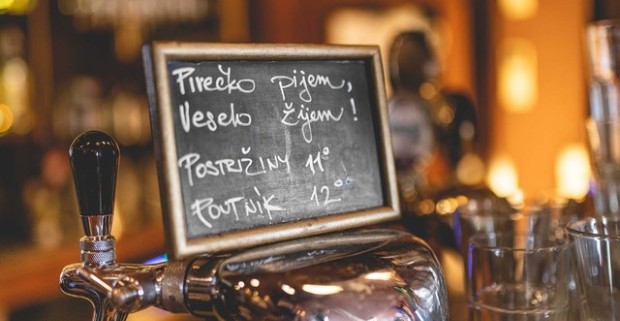 Pirečko pijem,
Veselo žijem!
POSTRIŽINY 11°
POUTNÍK 12°